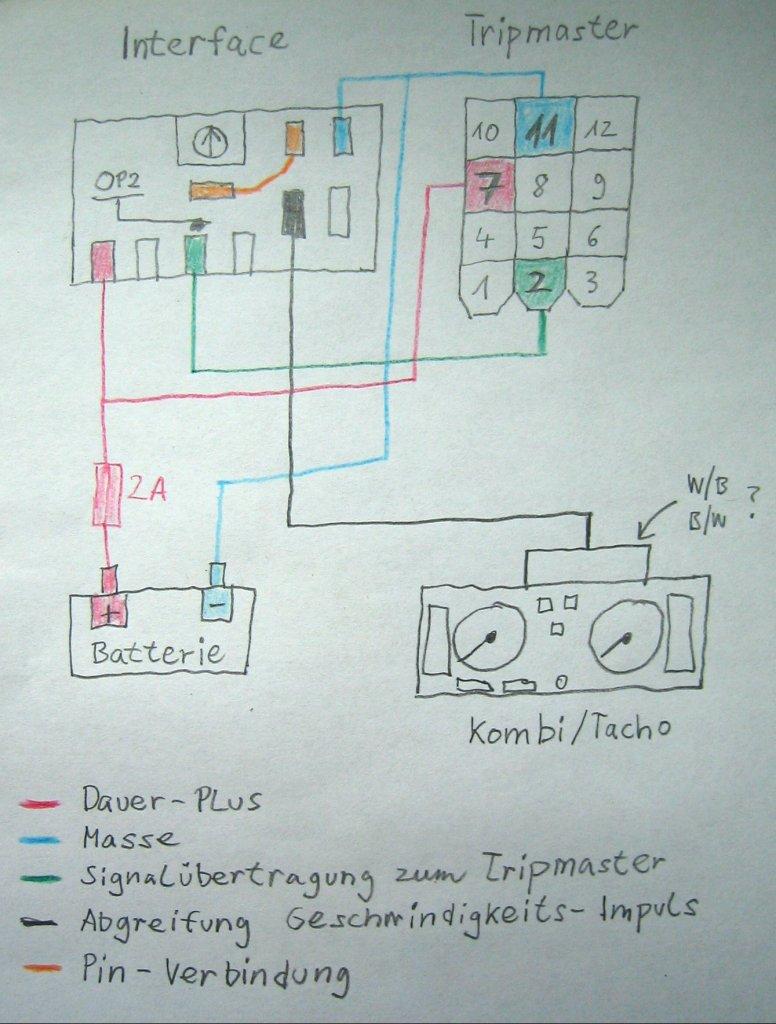 Interface
Tripmaster
OP2
10 11 12
7 8 9
4 5 6
1 2 3
2A
W/B
B/W ?
+ -
Batterie
Kombi/Tacho
Dauer-PLUS
Masse
Signalübertragung zum Tripmaster
Abgreifung Geschwindigkeits-Impuls
Pin-Verbindung